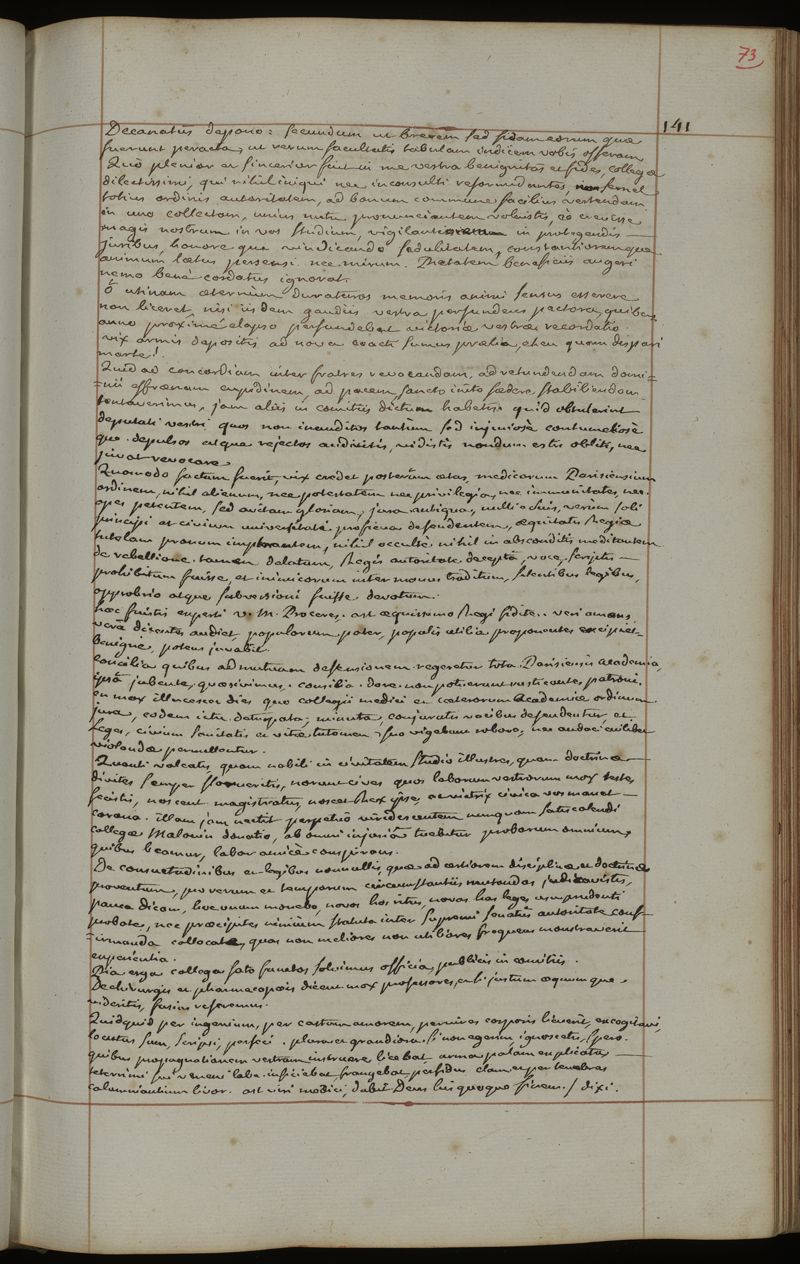 73
141
Decanatus depono: secundum ut brevem sed fidam eorum quæ
fuerunt peracta, ut rerum facultatis tabulam indicem vobis offeram
Quò plenior et sincerior fuit in me vestra benignitas et fides, collegæ
dilectissimi, qui nihil iniqui nec inconsulti reformidantes, non semel
totius ordinis autoritatem, ad bonum commune faciliùs vertendam
in uno collectam, unius nutu pronunciantem voluistis, eò crevisse
magis nostrum in vos studium, vigilantiorem in protegendis
juribus, honore que vindicando sedulitatem, constantioremque
animum lætus persensi. nec mirum. Pietatem beneficiis augeri
nemo benè cordatus ignorat.
ô utinam æternùm duraturos memoris animi sensus
non liceret, nisi iisdem gaudiis vestra perfundens pectora, quibus
anno proximè elapso perfundebat victoriæ vestræ recordatio
vix armis depositis ad nova coacti sumus prælia, eheu quam dispari
marte!
Quid ad concordiam inter fratres revocandam, ad retundendam domi=
=nii effrænam cupidinem, ad pacem sancto inito fœdere stabiliendam
tentaverimus, jam aliis in comitiis dictum habetis. quid obtulerint
deputati vestri quos non inauditos tantùm sed injuriosè contumeliosè
que depulsos atque rejectos audistis, vidistis nondum estis obliti, nec
juvat revocare
Quomodo factum fuerit, vix credet postera ætas, medicorum Parisiensium
ordinem, nihil alienum, nec potestatem nec privilegia, nec immunitates, nec
opes petentem, sed avitam gloriam, jura antiqua, nulli odiis, verùm soli
principi et civium universitati proficua defendentem, æquitatis Regiæ
tutelam pronum implorantem, nihil occultè nihil in absconditis meditantem
de rebellione tamen delatum, Regis autoritate decepta, voce, scriptis
prohibitum fuisse, et inimicorum inter manus traditum, silentibus legibus,
opprobrio atque subversioni fuisse devotum.
hæc fuistis experti V. M. Proceres. ast æquissimo Regi fidite. veri amans
vera dicentes audiet, popularum pater, populis utilia proponentes excipiet
benignè, potens juvabit.
Concilia quibus ad mutuam defensionem regeretur tota Parisiensis academia,
ipsa jubente, quæsivimus. consilia dare non potuerunt patroni.
en mox illucescet dies quo collegii medici et cæterorum Academiæ ordinum
jura, eodem ictu deturpata, minuta, conjunctis vocibus defendentur, et
leges, civium sanitatis et vitæ tutamen suo vigebunt robore, nec audaci cuilibet
violandæ permittentur.
Quanti valeatis, quam nobili in civitatem studio illustres, quam doctrina
divites semper florueritis, norunt cives quos laborum vestrorum mox testes
fecistis, noscent magistratus, noscet Rex ipse, ac victrix civica vos manet
corona. illam jam nectit perpetuò viridescentem nunquam satis colendi
collegæ Malouin donatio, ab omni injuriâ tuebitur proborum omnium,
quibus beamur, labor amicè conspirans.
De consuetudinibus et legibus nonnullis, quæ ad certiorem disciplinæ et doctrinæ
proventum, pro rerum et temporum circumstantiis mutandas judicavistis,
pauca dicam, hoc unum monebo, novos hos ritus, novas has leges usu prudenti
probate, nec præcipites nimiùm statuta inter supremi senatûs autoritate conf=
=irmanda collocate, quas non meliores non utiliores frequens monstraverit
experientia.
Pia erga collegas fato functos solvimus officia, publicis in comitiis.
De chirurgis et pharmacopœis dicent mox professores, et si justum æquum que
videritis, fusius referemus.
Quidquid per ingenium, per castum amorem, per vires corporis licuerit, excogitavi,
locutus sum, scripsi, perfeci. plura et grandiora si non egerim ignoscetis, spero.
quibus propugnationem vestram instruere licebat, arma palam explicata
teterrimi sui veneni labe inficiebat frangebat perfidus clam et per tenebras
calumniantium livor. ast viri modici, dabit Deus his quoque finem. / dixi.